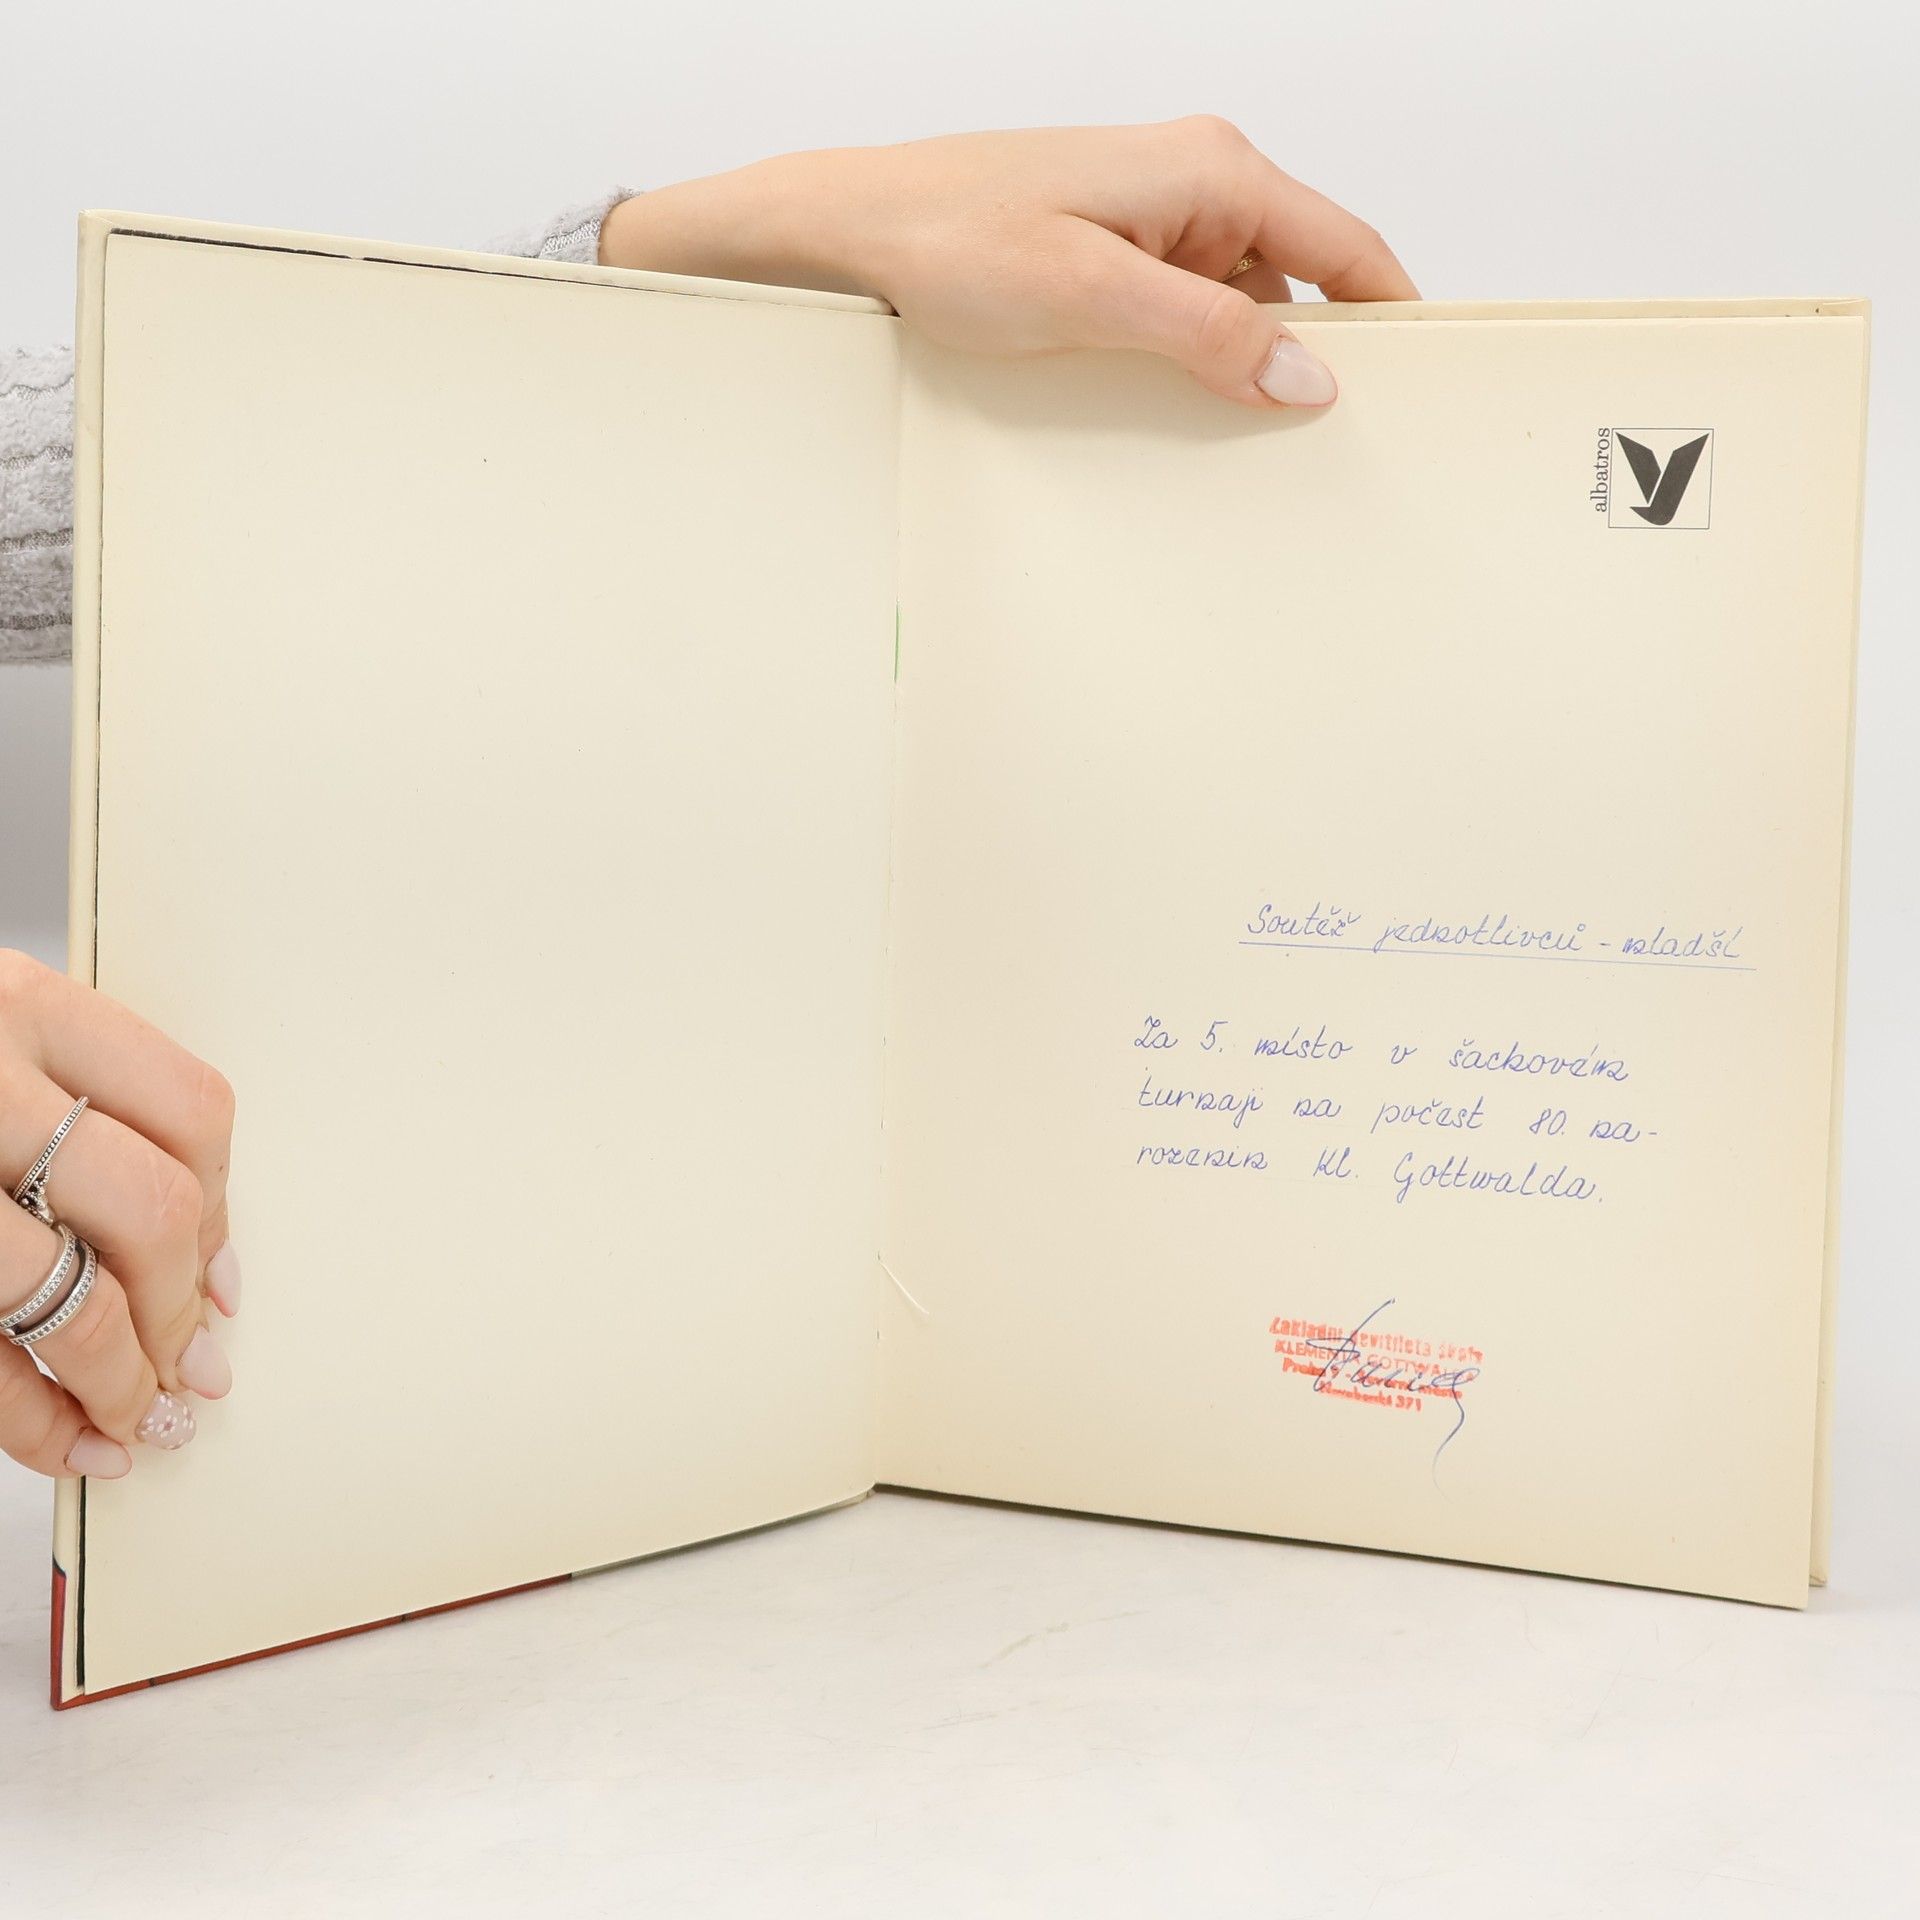 albatros
Soutěž jednotlivců - mladší
Za 5. místo v šachovém
turnaji na počest 80. na-
rozenin Kl. Gottwalda.
Základní devítiletá škola
KLEMENTA GOTTWALDA
Praha 9 - Černý most
371